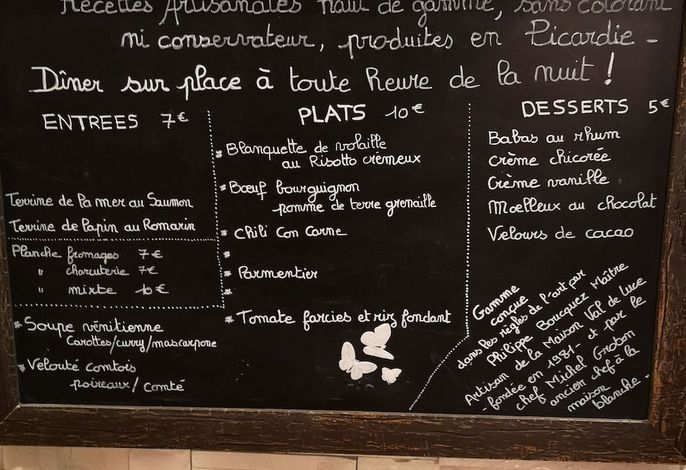 Recettes Artisanales haut de gamme, sans colorant
ni conservateur, produites en Picardie -
Dîner sur place à toute heure de la nuit !
ENTREES 7€
Terrine de la mer au Saumon
Terrine de lapin au Romarin
Planche fromages 7€
" charcuterie 7€
" mixte 10€
* Soupe vénitienne
Carottes/curry/mascarpone
* Velouté comtois
poireaux/comté
PLATS 10€
* Blanquette de volaille
au Risotto crèmeux
* Bœuf bourguignon
pomme de terre grenaille
* Chili Con Carne
*
* Parmentier
*
* Tomate farcies et riz fondant
DESSERTS 5€
Babas au rhum
Crème chicorée
Crème vanille
Moelleux au chocolat
Velours de cacao
Gamme
conçue
dans les règles de l'art par
Philippe Boucquez Maître
Artisan de la Maison Val de Luce
- fondée en 1981 - et par le
chef Michel Grobon
ancien chef à la
maison
blanche -